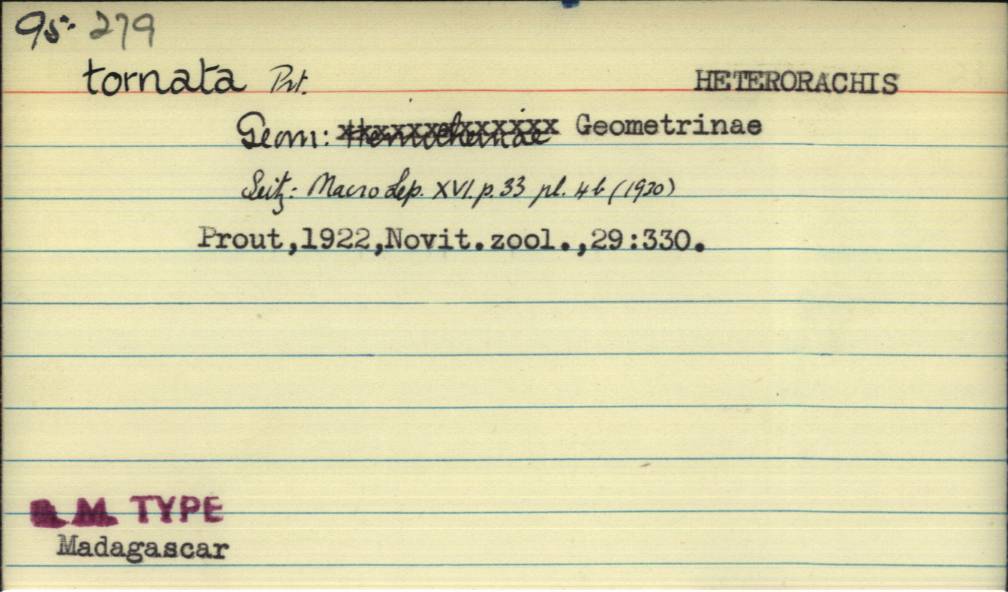 95. 279
tornata Prt. HETERORACHIS
Geom: Hemitheinae Geometrinae
Seitz: Macro Lep. XVI. p. 33 pl. 4b (1930)
Prout,1922,Novit.zool.,29:330.
B. M. TYPE
Madagascar